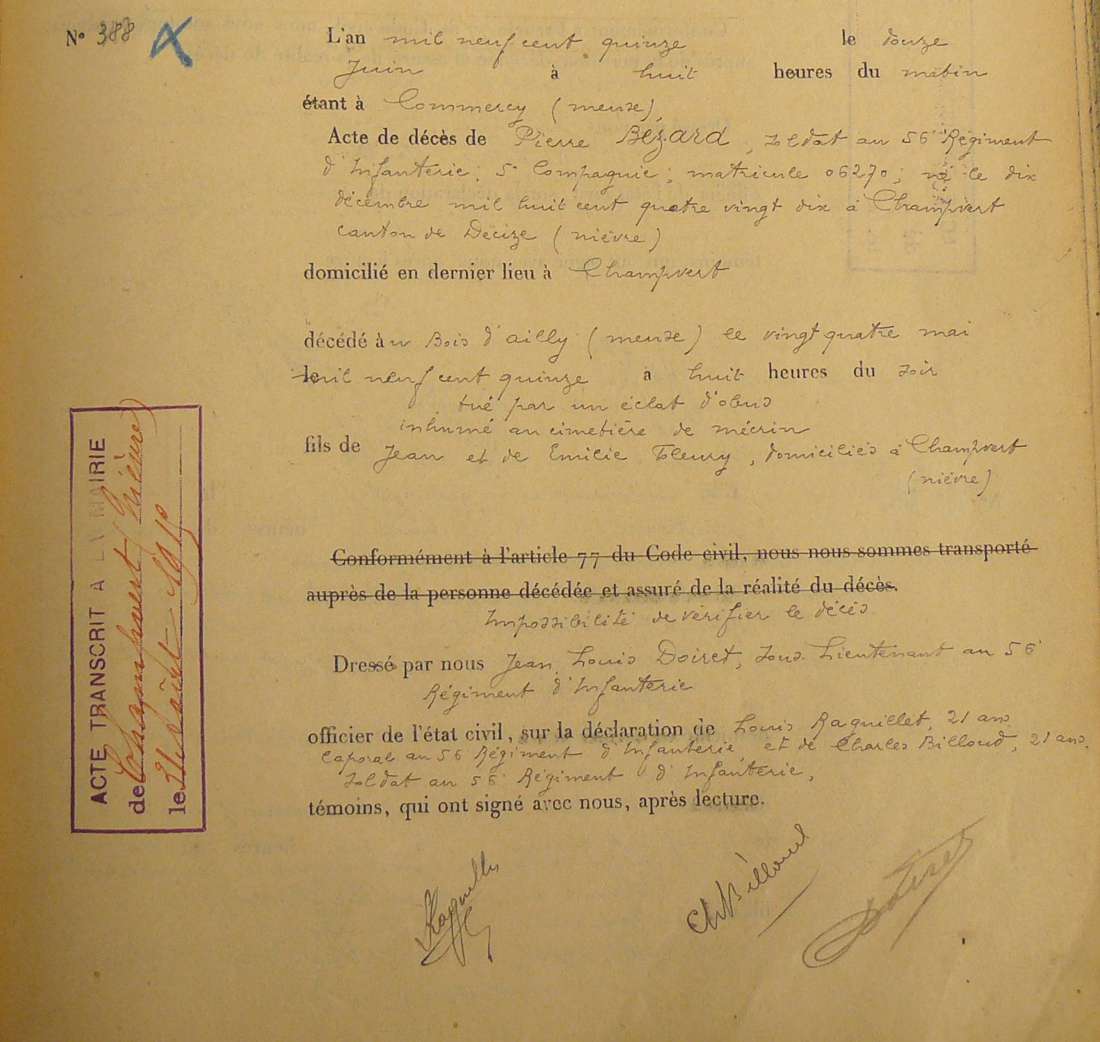 N° 388 X
L'an mil neuf cent quinze le douze
Juin à huit heures du matin
étant à Commercy (meuse),
Acte de décès de Pierre Bézard, soldat au 56e Régiment
d'Infanterie, 5e Compagnie; matricule 06270; né le dix
décembre mil huit cent quatre vingt dix à Champvert
canton de Decize (nièvre)
domicilié en dernier lieu à Champvert
décédé au Bois d'ailly (meuse) le vingt quatre mai
le mil neuf cent quinze à huit heures du soir
tué par un éclat d'obus
inhumé au cimetière de mécrin
fils de Jean et de Emilie Fleury, domiciliés à Champvert
(nièvre)
Conformément à l'article 77 du Code civil, nous nous sommes transporté
auprès de la personne décédée et assuré de la réalité du décès.
Impossibilité de vérifier le décès
Dressé par nous Jean, Louis Doiret, Sous-Lieutenant au 56e
Régiment d'Infanterie
officier de l'état civil, sur la déclaration de Louis Raquillet, 21 ans
Caporal au 56 Régiment d'Infanterie et de Charles Billoud, 21 ans,
Soldat au 56e Régiment d'Infanterie,
témoins, qui ont signé avec nous, après lecture.
Raquillet
Ch Billoud
Doiret
ACTE TRANSCRIT A LA MAIRIE
de Champvert (Nièvre)
le 31 Août 1915